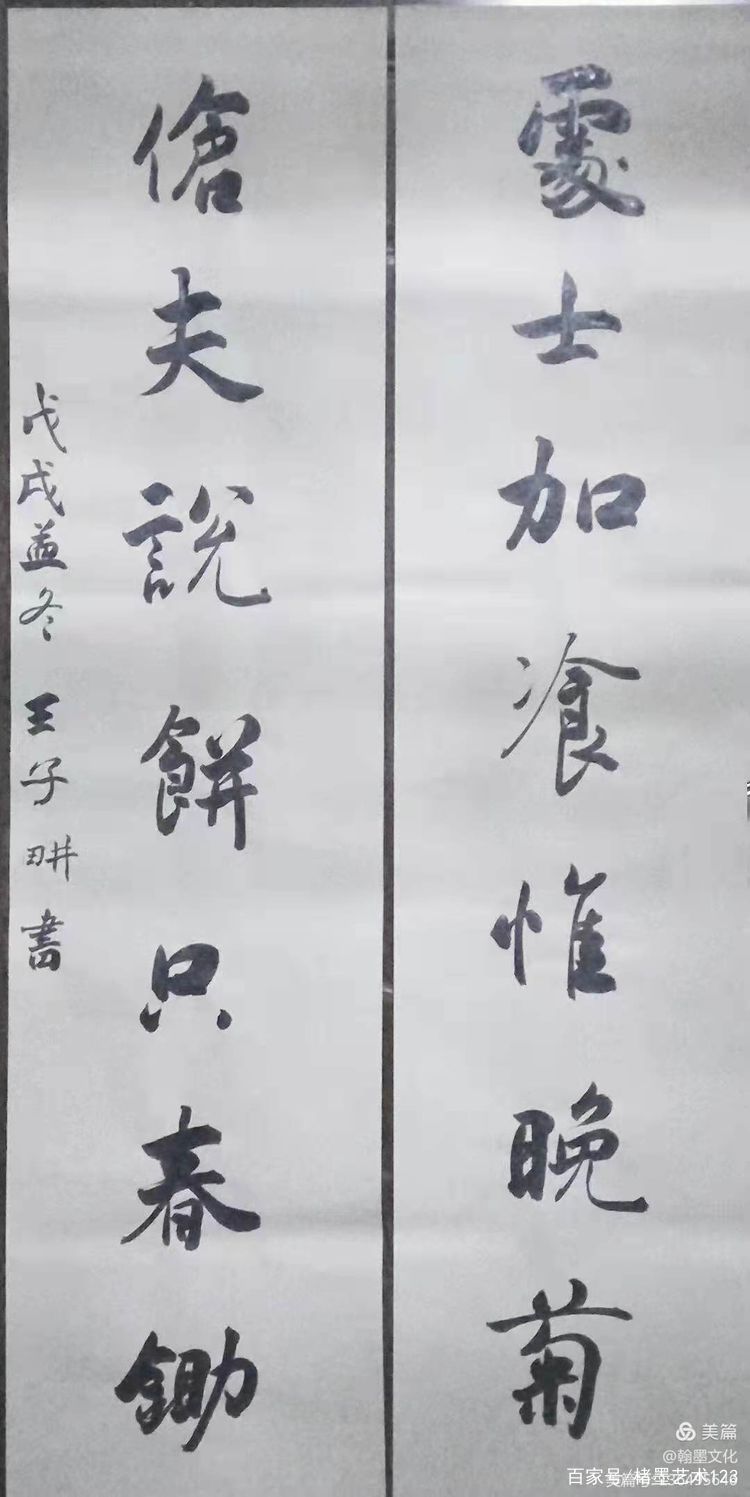 處士加飡惟晚菊
傖夫說餅只春鋤
戊戌孟冬 王子畊書
美篇
@翰墨文化
百家号/楮墨艺术123